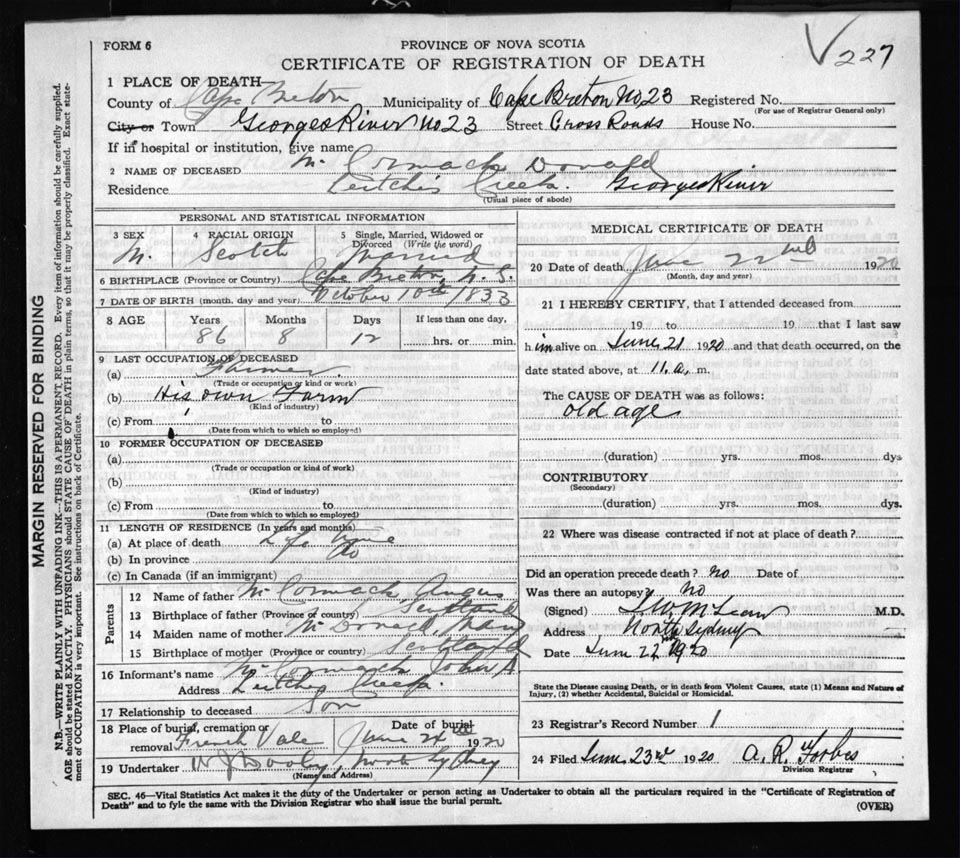 FORM 6
PROVINCE OF NOVA SCOTIA
CERTIFICATE OF REGISTRATION OF DEATH
V 227
1 PLACE OF DEATH
County of Cape Breton Municipality of Cape Breton No 23 Registered No.
(For use of Registrar General only)
City or Town Georges River No 23 Street Cross Roads House No.
If in hospital or institution, give name
2 NAME OF DECEASED McCormack Donald
Residence Leitches Creek. Georges River
(Usual place of abode)
PERSONAL AND STATISTICAL INFORMATION
3 SEX M.
4 RACIAL ORIGIN Scotch
5 Single, Married, Widowed or Divorced (Write the word) Married
6 BIRTHPLACE (Province or Country) Cape Breton, N. S.
7 DATE OF BIRTH (month, day and year) October 10th 1833
8 AGE Years Months Days If less than one day,
86 8 12 hrs. or min.
9 LAST OCCUPATION OF DECEASED
(a) Farmer.
(Trade or occupation or kind or work)
(b) His own Farm
(Kind of industry)
(c) From to
(Date from which to which so employed)
10 FORMER OCCUPATION OF DECEASED
(a)
(Trade or occupation or kind of work)
(b)
(Kind of industry)
(c) From to
(Date from which to which so employed)
11 LENGTH OF RESIDENCE (In years and months)
(a) At place of death Life time
(b) In province do
(c) In Canada (if an immigrant)
Parents
12 Name of father McCormack Angus
13 Birthplace of father (Province or country) Scotland
14 Maiden name of mother McDonald Mary
15 Birthplace of mother (Province or country) Scotland
16 Informant's name McCormack John A
Address Leitches Creek.
17 Relationship to deceased Son
18 Place of burial, cremation or removal French Vale Date of burial June 24 1920
19 Undertaker North Sydney
(Name and Address)
MEDICAL CERTIFICATE OF DEATH
20 Date of death June 22nd 1920
(Month, day and year)
21 I HEREBY CERTIFY, that I attended deceased from
19 to 19 that I last saw
h im alive on June 21 1920 and that death occurred, on the
date stated above, at 11. a. m.
The CAUSE OF DEATH was as follows:
old age
(duration) yrs. mos. dys
CONTRIBUTORY
(Secondary)
(duration) yrs. mos. dys.
22 Where was disease contracted if not at place of death?
Did an operation precede death? No Date of
Was there an autopsy? No
(Signed) McLean M.D.
Address North Sydney
Date June 22nd 1920
State the Disease causing Death, or in death from Violent Causes, state (1) Means and Nature of
Injury, (2) whether Accidental, Suicidal or Homicidal.
23 Registrar's Record Number 1
24 Filed June 23rd 1920 A. R. Forbes
Division Registrar
SEC. 46—Vital Statistics Act makes it the duty of the Undertaker or person acting as Undertaker to obtain all the particulars required in the "Certificate of Registration of
Death" and to fyle the same with the Division Registrar who shall issue the burial permit.
(OVER)
MARGIN RESERVED FOR BINDING
N.B.—WRITE PLAINLY WITH UNFADING INK—THIS IS A PERMANENT RECORD. Every item of information should be carefully supplied.
AGE should be stated EXACTLY. PHYSICIANS should STATE CAUSE OF DEATH in plain terms, so that it may be properly classified. Exact state-
ment of OCCUPATION is very important. See instructions on back of Certificate.